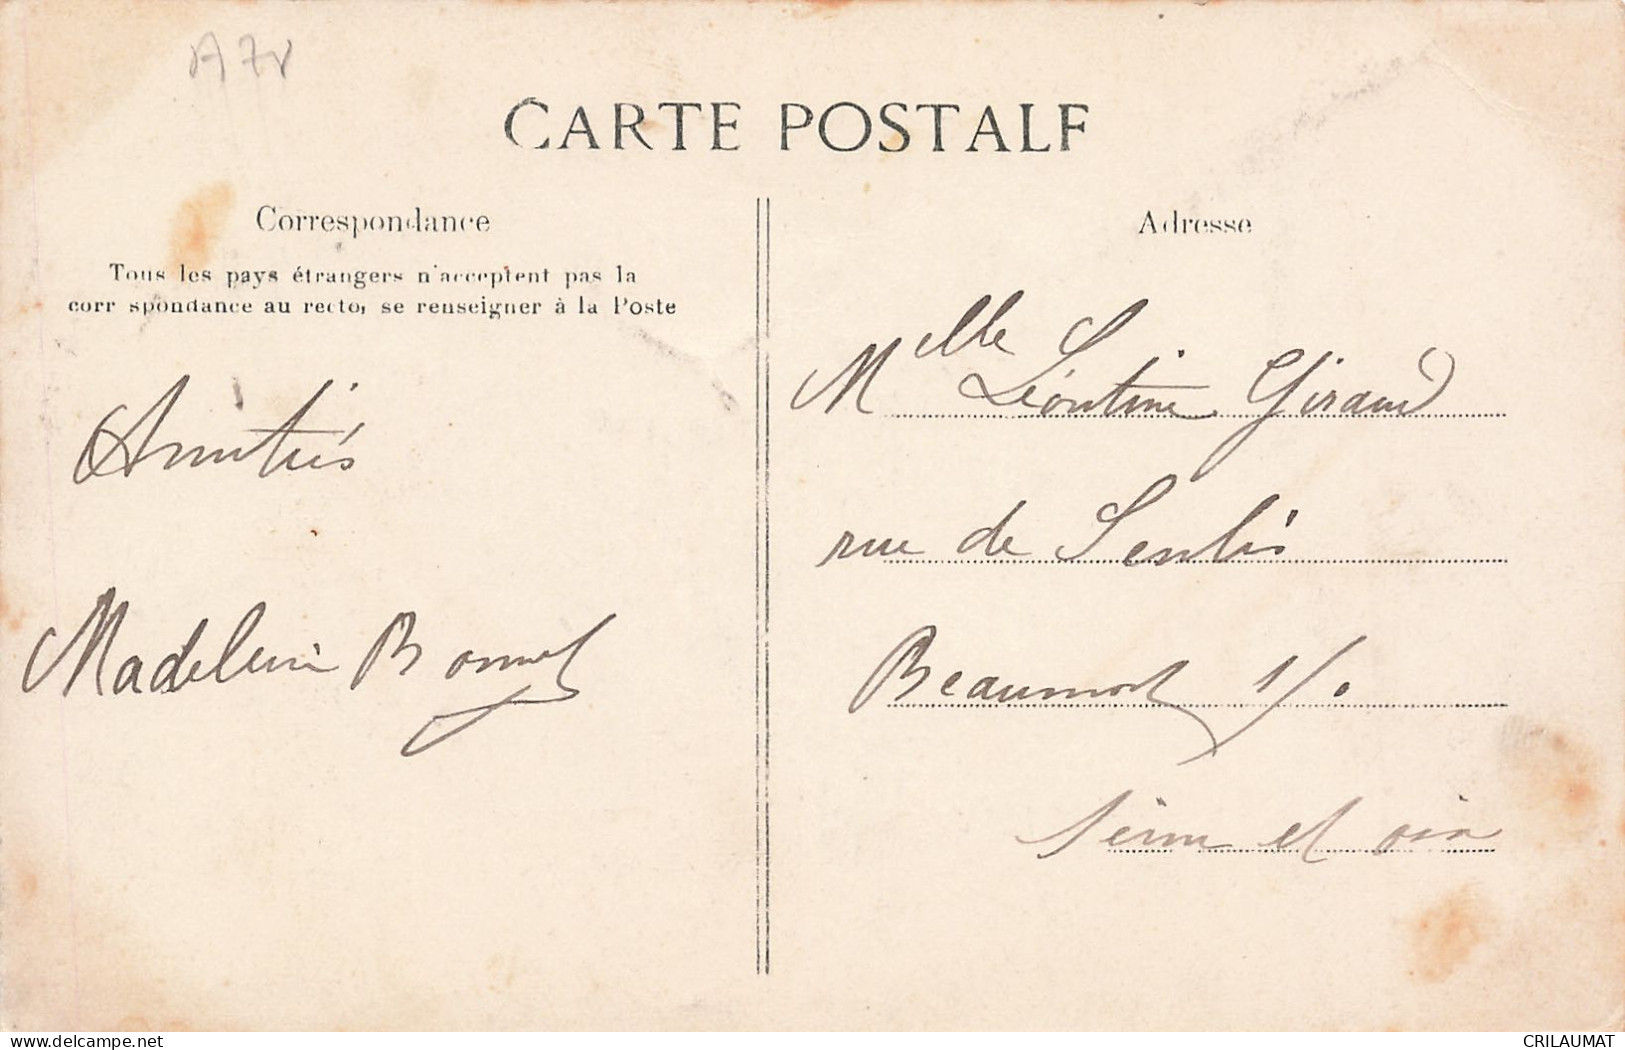 CARTE POSTALE
Correspondance
Tous les pays étrangers n'acceptent pas la
correspondance au recto, se renseigner à la Poste
Amitiés
Madeleine Bonnet
Adresse
Melle Léontine Giraud
rue de Senlis
Beaumont s/o
Seine et oise
delcampe.net
CRILAUMAT